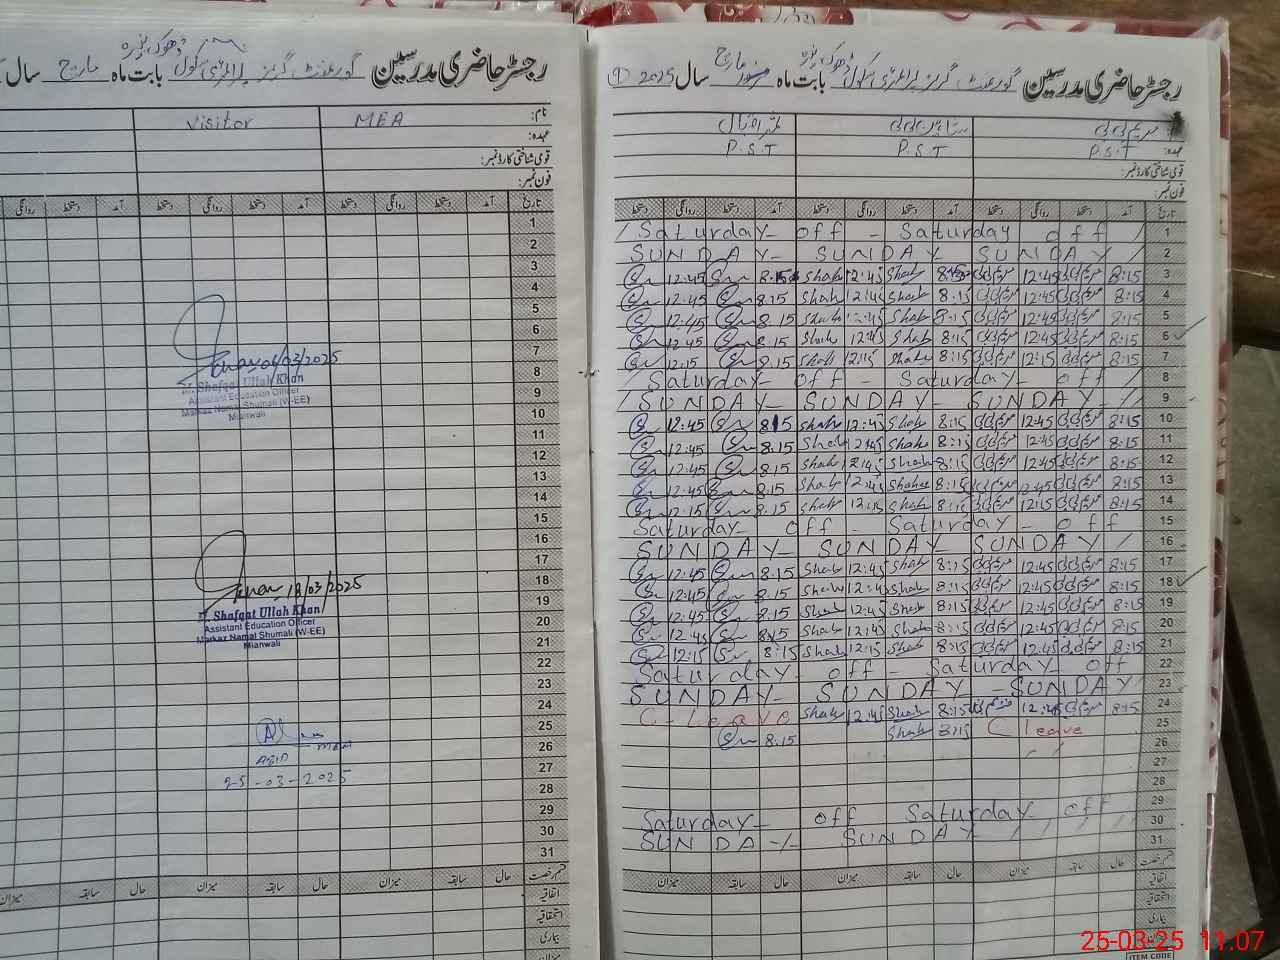 رجسٹر حاضری مدرسین گورنمنٹ گرلز پرائمری سکول بابت ماہ مارچ سال
نام: MEA Visitor
عہدہ:
قومی شناختی کارڈ نمبر:
فون نمبر:
تاریخ آمد دستخط روانگی دستخط آمد دستخط روانگی دستخط آمد دستخط روانگی
1
2
3
4
5
6
7
06/03/2025
8
Shafqat Ullah Khan
Assistant Education Officer
9
Markaz Namal Shumali (W-EE)
Mianwali
10
11
12
13
14
15
16
17
18
18/03/2025
19
Shafqat Ullah Khan
20
Assistant Education Officer
Markaz Namal Shumali (W-EE)
21
Mianwali
22
23
24
25
26
27
25-03-2025
28
29
30
31
قسم رخصت حال سابقہ میزان حال سابقہ میزان حال سابقہ میزان
اتفاقیہ
استحقاقیہ
بیماری
میزان
رجسٹر حاضری مدرسین گورنمنٹ گرلز پرائمری سکول بابت ماہ مارچ سال 2025
مریم بی بی
عہدہ: P.S.T P.S.T P.S.T
قومی شناختی کارڈ نمبر:
فون نمبر:
تاریخ آمد دستخط روانگی دستخط آمد دستخط روانگی دستخط آمد دستخط روانگی دستخط
1 Saturday - off - Saturday off
2 SUNDAY - SUNDAY - SUNDAY
3 12:45 8:15 Shah 12:45 Shah 12:45 8:15
4 12:45 8:15 Shah 12:45 Shah 8:15 12:45 8:15
5 12:45 8:15 Shah 12:45 Shah 8:15 12:45 8:15
6 12:45 8:15 Shah 12:45 Shah 8:15 12:45 8:15
7 12:15 8:15 Shah 12:15 Shah 8:15 12:15 8:15
8 Saturday - off - Saturday - off
9 SUNDAY - SUNDAY - SUNDAY -
10 12:45 8:15 Shah 12:45 Shah 8:15 12:45 8:15
11 12:45 8:15 Shah 12:45 Shah 8:15 12:45 8:15
12 12:45 8:15 Shah 12:45 Shah 8:15 12:45 8:15
13 12:45 8:15 Shah 12:45 Shah 8:15 12:45 8:15
14 12:15 8:15 Shah 12:15 Shah 8:15 12:15 8:15
15 Saturday - off - Saturday - off
16 SUNDAY - SUNDAY - SUNDAY
17 12:45 8:15 Shah 12:45 Shah 8:15 12:45 8:15
18 12:45 8:15 Shah 12:45 Shah 8:15 12:45 8:15
19 12:45 8:15 Shah 12:45 Shah 8:15 12:45 8:15
20 12:45 8:15 Shah 12:45 Shah 8:15 12:45 8:15
21 12:15 8:15 Shah 12:15 Shah 8:15 12:45 8:15
22 Saturday - off - Saturday - off
23 SUNDAY - SUNDAY - SUNDAY
24 C-Leave Shah 12:45 Shah 8:15 12:45 8:15
25 8:15 Shah 8:15 C leave
26
27
28
29 Saturday - off Saturday off
30 SUNDAY - SUNDAY
31
قسم رخصت حال سابقہ میزان حال سابقہ میزان حال سابقہ میزان
اتفاقیہ
استحقاقیہ
بیماری
میزان
25-03-25 11.07
ITEM CODE